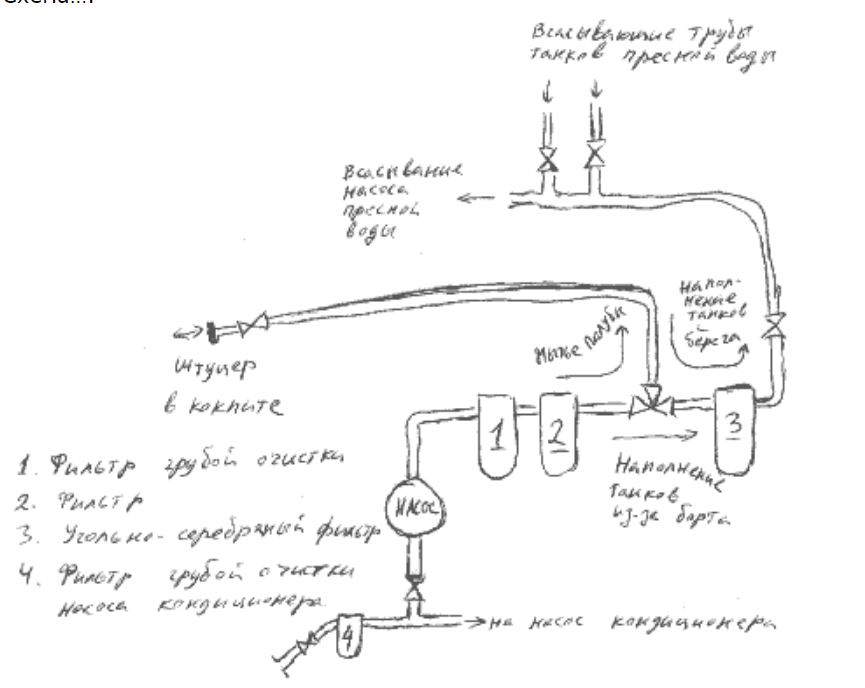 Всасывающие трубы
танков пресной воды
Всасывание
насоса
пресной
воды
Напол-
нение
танков
с
берега
Мытье палубы
Штуцер
в кокпите
1
2
3
Наполнение
танков
из-за борта
насос
1. Фильтр грубой очистки
2. Фильтр
3. Угольно-серебряный фильтр
4. Фильтр грубой очистки
насоса кондиционера
4
на насос кондиционера